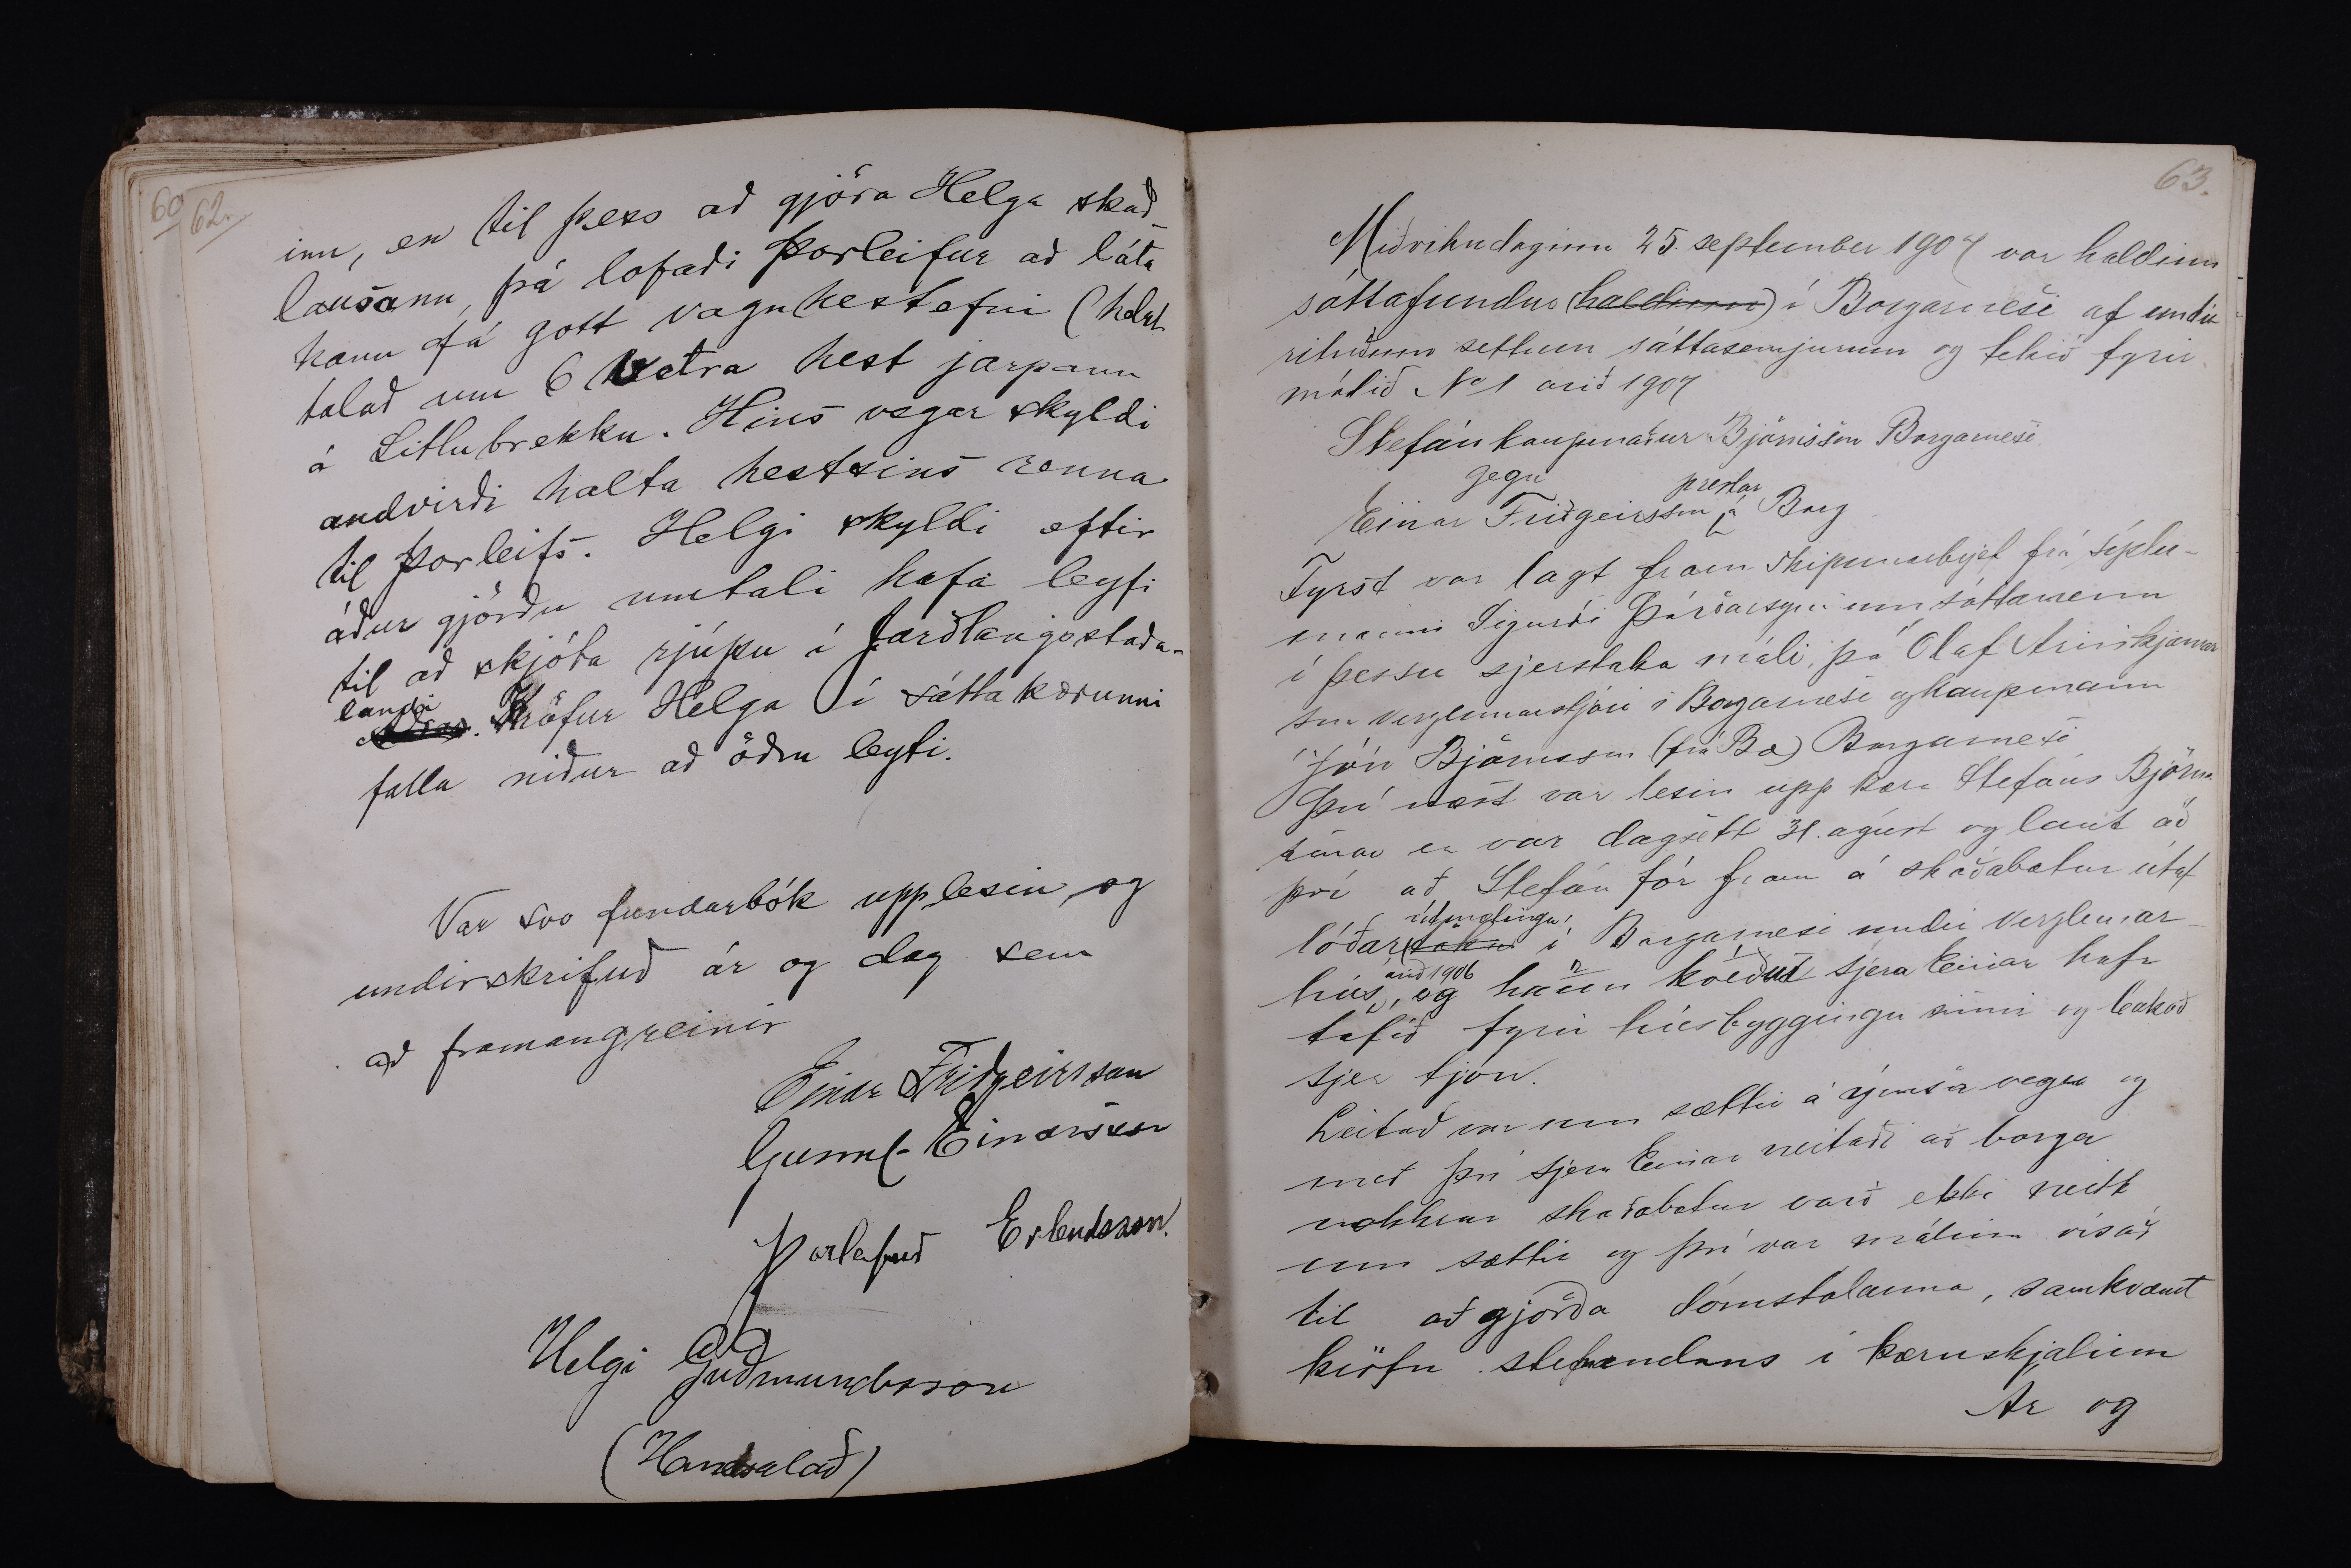 60
62.
inn, en til þess að gjöra Helga skað-
lausann, þá lofaði Þorleifur að láta
hann fá gott vagnhestefni (helst
talað um 6 vetra hest jarpann
á Litlubrekku. Hins vegar skyldi
andvirði halta hestsins renna
til Þorleifs. Helgi skyldi eftir
áður gjörðu umtali hafa leyfi
til að skjóta rjúpu í Jarðlangsstaða-
landi
Kröfur Helga í sáttakærunni
falla niður að öðru leyti.
Var svo fundarbók upplesin og
undirskrifuð ár og dag sem
að framangreinir
Einar Friðgeirsson
Gunnl. Einarsson
Þorleifur Erlendsson.
Helgi Guðmundsson
(Handsalað)
63.
Miðvikudaginn 25. september 1907 var haldinn
sáttafundur (haldinn) í Borgarnesi af undir
rituðum settum sáttasemjurum og tekið fyrir
málið No 1 árið 1907
Stefán kaupmaður Björnsson Borgarnesi
gegn
prestar
Einar Friðgeirsson á Borg
Fyrst var lagt fram skipunarbrjef frá sýslu-
manni Sigurði Þórðarsyni um sáttamenn
í þessu sjerstaka máli, þá Ólaf Arinbjarnar
son verzlunarstjóri í Borgarnesi og kaupmann
Jón Björnsson (frá Bæ) Borgarnesi
Því næst var lesin upp kæra Stefáns Björns
sonar er var dagsett 31. ágúst og laut að
því að Stefán fór fram á skaðabætur útaf
útmælingu
lóðar(töku) í Borgarnesi undir verzlunar-
árið 1906
hús, og hann kveður sjera Einar hafa
tafið fyrir húsbyggingu sinni og bakað
sjer tjón.
Leitað var um sættir á ýmsa vegu og
með því sjera Einar neitaði að borga
nokkrar skaðabætur varð ekki neitt
um sættir og því var málinu vísað
til aðgjörða dómstólanna, samkvæmt
kröfu stefnandans í kæruskjalinu
Ár og